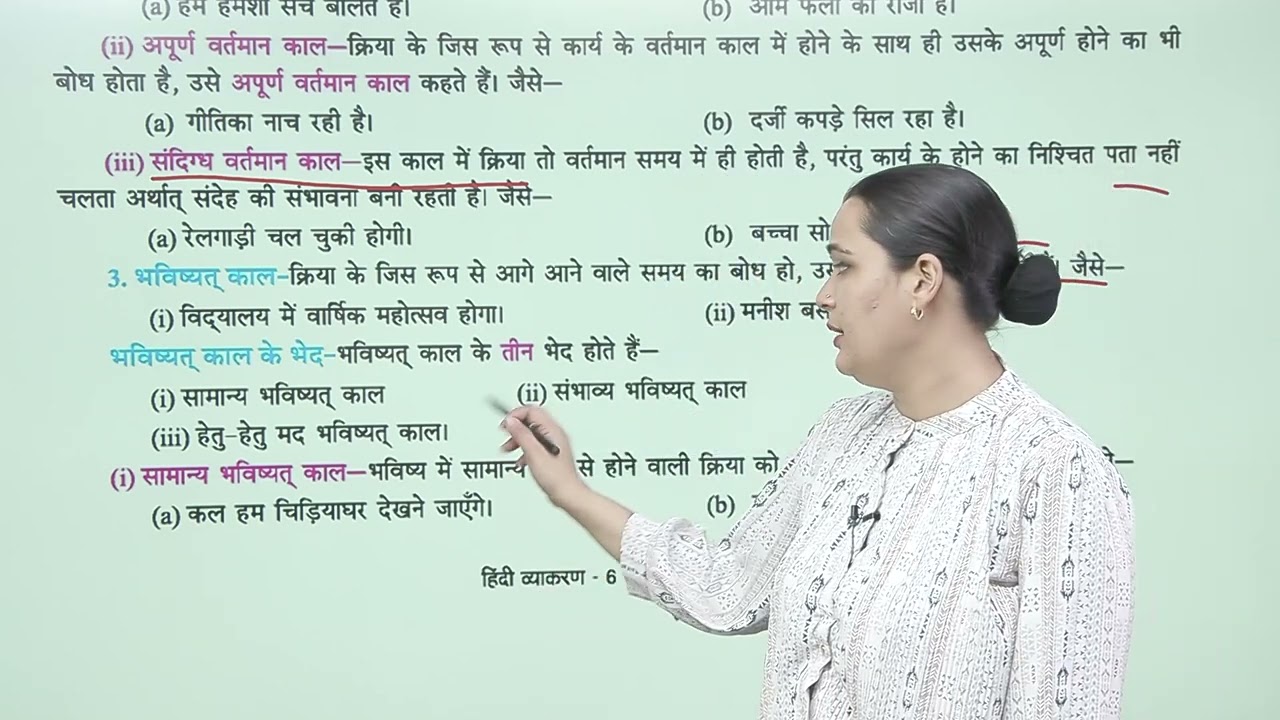 (a) हम हमेशा सच बोलते हैं। (b) आम फलों का राजा है।
(ii) अपूर्ण वर्तमान काल–क्रिया के जिस रूप से कार्य के वर्तमान काल में होने के साथ ही उसके अपूर्ण होने का भी
बोध होता है, उसे अपूर्ण वर्तमान काल कहते हैं। जैसे–
(a) गीतिका नाच रही है। (b) दर्जी कपड़े सिल रहा है।
(iii) संदिग्ध वर्तमान काल–इस काल में क्रिया तो वर्तमान समय में ही होती है, परंतु कार्य के होने का निश्चित पता नहीं
चलता अर्थात् संदेह की संभावना बनी रहती है। जैसे–
(a) रेलगाड़ी चल चुकी होगी। (b) बच्चा
3. भविष्यत् काल–क्रिया के जिस रूप से आगे आने वाले समय का बोध हो, जैसे–
(i) विद्यालय में वार्षिक महोत्सव होगा। (ii) मनीश
भविष्यत् काल के भेद–भविष्यत् काल के तीन भेद होते हैं–
(i) सामान्य भविष्यत् काल (ii) संभाव्य भविष्यत् काल
(iii) हेतु-हेतु मद भविष्यत् काल।
(i) सामान्य भविष्यत् काल–भविष्य में सामान्य से होने वाली क्रिया को
(a) कल हम चिड़ियाघर देखने जाएँगे। (b)
हिंदी व्याकरण - 6